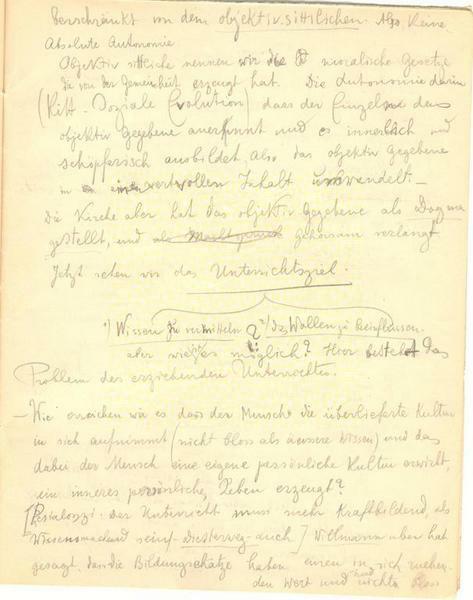 beschränkt von dem objektiv sittlichen. Also keine
Absolute Autonomie
Objektiv sittliche nennen wir die moralische Gesetze
die von der Gemeinheit erzeugt hat. Die Autonomie darin
(Kitt - Soziale Evolution) dass der Einzelne das
objektiv Gegebene anerkennt und es innerlich und
schöpferisch ausbildet, also das objektiv Gegebene
in einen wertvollen Inhalt umwandelt. —
Die Kirche aber hat das objektiv Gegebene als Dogma
gestellt, und als Gehorsam verlangt
Jetzt sehen wir das Unterrichtsziel.
1) Wissen zu vermitteln 2) das Wollen zu beeinflussen.
aber wie ist es möglich? Hier besteht das
Problem des erziehenden Unterrichtes.
— Wie erreichen wir es dass der Mensch die überlieferte Kultur
in sich aufnimmt (nicht bloss als äussere Wissen) und das
dabei der Mensch eine eigene persönliche Kultur erwirbt,
ein inneres persönliches Leben erzeugt?
[Pestalozzi: der Unterricht muss mehr Kraftbildend, als
Wissensmachend sein - Diesterweg auch] Willmann aber hat
gesagt, das die Bildungsschätze haben einen in sich ruhen-
den Wert und sind nicht bloss